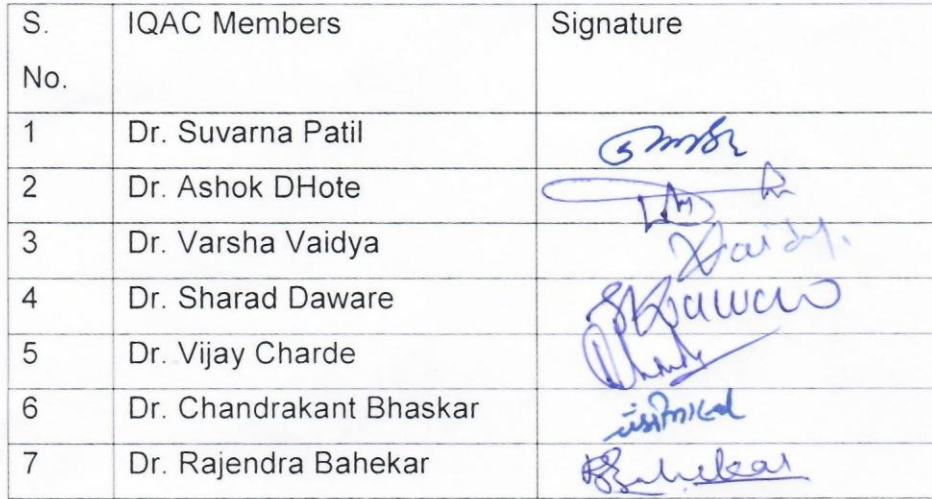 S. No. IQAC Members Signature
1 Dr. Suvarna Patil
2 Dr. Ashok DHote
3 Dr. Varsha Vaidya Vaidya.
4 Dr. Sharad Daware
5 Dr. Vijay Charde
6 Dr. Chandrakant Bhaskar
7 Dr. Rajendra Bahekar Bahekar